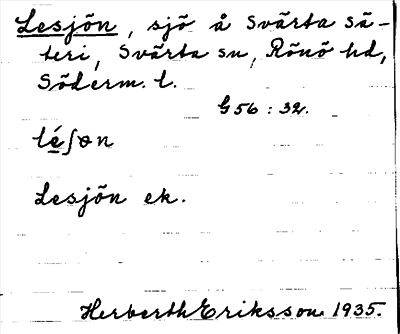 Lesjön, sjö å Svärta sä-
teri, Svärta sn, Rönö hd,
Söderm. l.
G56 : 32.
léʃɵn
Lesjön ek.
Herberth Eriksson 1935.